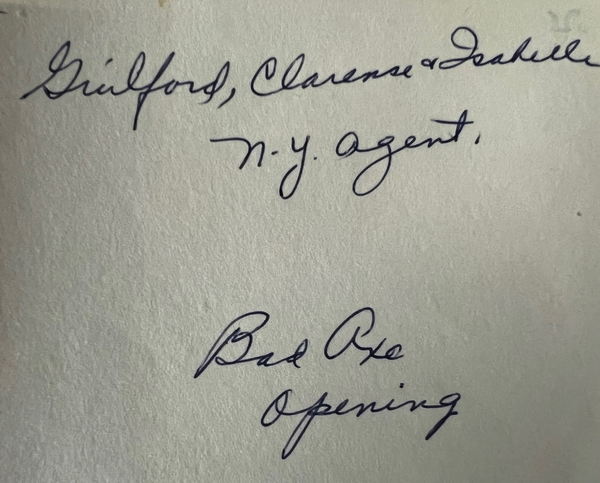 Guilford, Clarense & Isabelle
N.Y. Agent.
Bad Axe
Opening